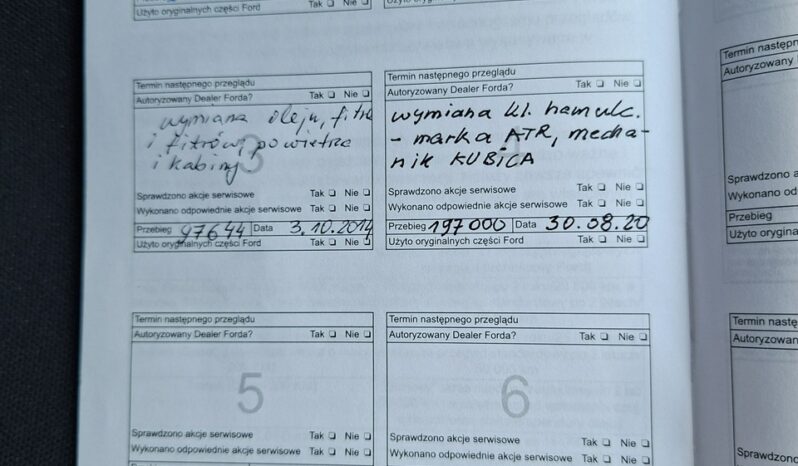 Użyto oryginalnych części Ford Tak Nie
Termin następnego przeglądu
Autoryzowany Dealer Forda? Tak Nie
wymiana oleju, filtra
i filtrów, powietrza
i kabiny
3
Sprawdzono akcje serwisowe Tak Nie
Wykonano odpowiednie akcje serwisowe Tak Nie
Przebieg 97644 Data 3.10.2014
Użyto oryginalnych części Ford Tak Nie
Termin następnego przeglądu
Autoryzowany Dealer Forda? Tak Nie
wymiana kl. hamulc.
- marka ATR, mecha-
nik KUBICA
Sprawdzono akcje serwisowe Tak Nie
Wykonano odpowiednie akcje serwisowe Tak Nie
Przebieg 197000 Data 30.08.20
Użyto oryginalnych części Ford Tak Nie
Termin następnego przeglądu
Autoryzowany Dealer Forda? Tak Nie
5
Sprawdzono akcje serwisowe Tak Nie
Wykonano odpowiednie akcje serwisowe Tak Nie
Termin następnego przeglądu
Autoryzowany Dealer Forda? Tak Nie
6
Sprawdzono akcje serwisowe Tak Nie
Wykonano odpowiednie akcje serwisowe Tak Nie
Termin następn
Autoryzowany
Sprawdzono a
Wykonano od
Przebieg
Użyto oryginaln
Termin następn
Autoryzowan
Sprawdzono
Wykonano